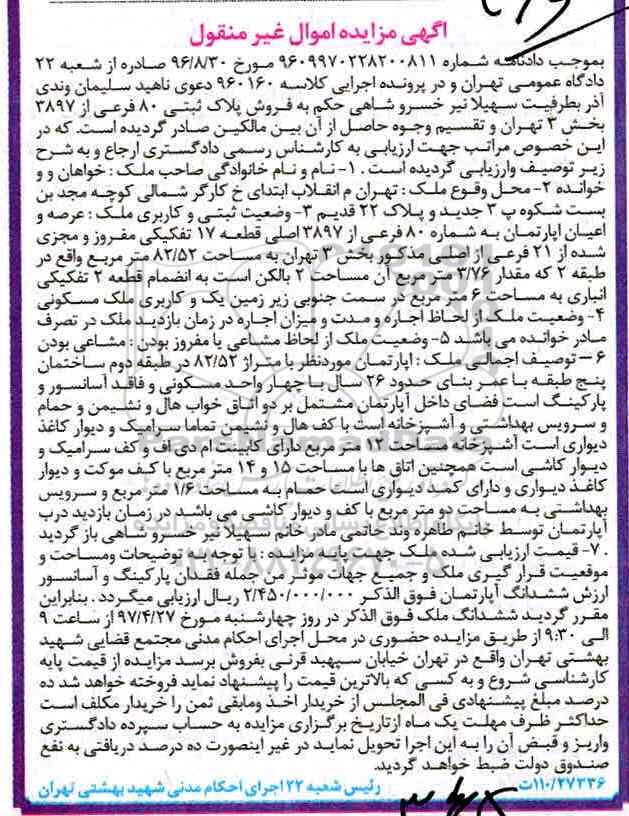 آگهی مزایده اموال غیر منقول
بموجب دادنامه شماره ۹۶۰۹۹۷۰۲۲۸۲۰۰۸۱۱ مورخ ۹۶/۸/۳۰ صادره از شعبه ۲۲
دادگاه عمومی تهران و در پرونده اجرایی کلاسه ۹۶۰۱۶۰ دعوی ناهید سلیمان وندی
آذر بطرفیت سهیلا نیر خسرو شاهی حکم به فروش پلاک ثبتی ۸۰ فرعی از ۳۸۹۷
بخش ۳ تهران و تقسیم وجوه حاصل از آن بین مالکین صادر گردیده است. که در
این خصوص مراتب جهت ارزیابی به کارشناس رسمی دادگستری ارجاع و به شرح
زیر توصیف وارزیابی گردیده است . ۱-نام و نام خانوادگی صاحب ملک : خواهان و و
خوانده ۲-محل وقوع ملک : تهران م انقلاب ابتدای خ کارگر شمالی کوچه مجد بن
بست شکوه پ ۳ جدید و پلاک ۲۲ قدیم ۳- وضعیت ثبتی و کاربری ملک : عرصه و
اعیان آپارتمان به شماره ۸۰ فرعی از ۳۸۹۷ اصلی قطعه ۱۷ تفکیکی مفروز و مجزی
شده از ۲۱ فرعی از اصلی مذکور بخش ۳ تهران به مساحت ۸۲/۵۲ متر مربع واقع در
طبقه ۲ که مقدار ۳/۷۶ متر مربع آن مساحت ۲ بالکن است به انضمام قطعه ۲ تفکیکی
انباری به مساحت ۶ متر مربع در سمت جنوبی زیر زمین یک و کاربری ملک مسکونی
۴- وضعیت ملک از لحاظ اجاره و مدت و میزان اجاره در زمان بازدید ملک در تصرف
مادر خوانده می باشد ۵- وضعیت ملک از لحاظ مشاعی یا مفروز بودن : مشاعی بودن
۶ – توصیف اجمالی ملک : آپارتمان موردنظر با متراژ ۸۲/۵۲ در طبقه دوم ساختمان
پنج طبقه با عمر بنای حدود ۲۶ سال با چهار واحد مسکونی و فاقد آسانسور و
پارکینگ است فضای داخل آپارتمان مشتمل بر دو اتاق خواب هال و نشیمن و حمام
و سرویس بهداشتی و آشپزخانه است با کف هال و نشیمن تماما سرامیک و دیوار کاغذ
دیواری است آشپزخانه مساحت ۱۲ متر مربع دارای کابینت ام دی اف و کف سرامیک و
دیوار کاشی است همچنین اتاق ها با مساحت ۱۵ و ۱۴ متر مربع با کف موکت و دیوار
کاغذ دیواری و دارای کمد دیواری است حمام به مساحت ۱/۶ متر مربع و سرویس
بهداشتی به مساحت دو متر مربع با کف و دیوار کاشی می باشد در زمان بازدید درب
آپارتمان توسط خانم طاهره وند حاتمی مادر خانم سهیلا نیر خسرو شاهی باز گردید
. ۷- قیمت ارزیابی شده ملک جهت پایه مزایده : با توجه به توضیحات ومساحت و
موقعیت قرار گیری ملک و جمیع جهات موثر من جمله فقدان پارکینگ و آسانسور
ارزش ششدانگ آپارتمان فوق الذکر ۲/۴۵۰/۰۰۰/۰۰۰ ریال ارزیابی میگردد . بنابراین
مقرر گردید ششدانگ ملک فوق الذکر در روز چهارشنبه مورخ ۹۷/۴/۲۷ از ساعت ۹
الی ۹:۳۰ از طریق مزایده حضوری در محل اجرای احکام مدنی مجتمع قضایی شهید
بهشتی تهران واقع در تهران خیابان سپهبد قرنی بفروش برسد مزایده از قیمت پایه
کارشناسی شروع و به کسی که بالاترین قیمت را پیشنهاد نماید فروخته خواهد شد ده
درصد مبلغ پیشنهادی فی المجلس از خریدار اخذ ومابقی ثمن را خریدار مکلف است
حداکثر ظرف مهلت یک ماه ازتاریخ برگزاری مزایده به حساب سپرده دادگستری
واریز و قبض آن را به این اجرا تحویل نماید در غیر اینصورت ده درصد دریافتی به نفع
صندوق دولت ضبط خواهد گردید.
۱۱۰/۲۷۳۳۶ت رئیس شعبه ۲۲ اجرای احکام مدنی شهید بهشتی تهران